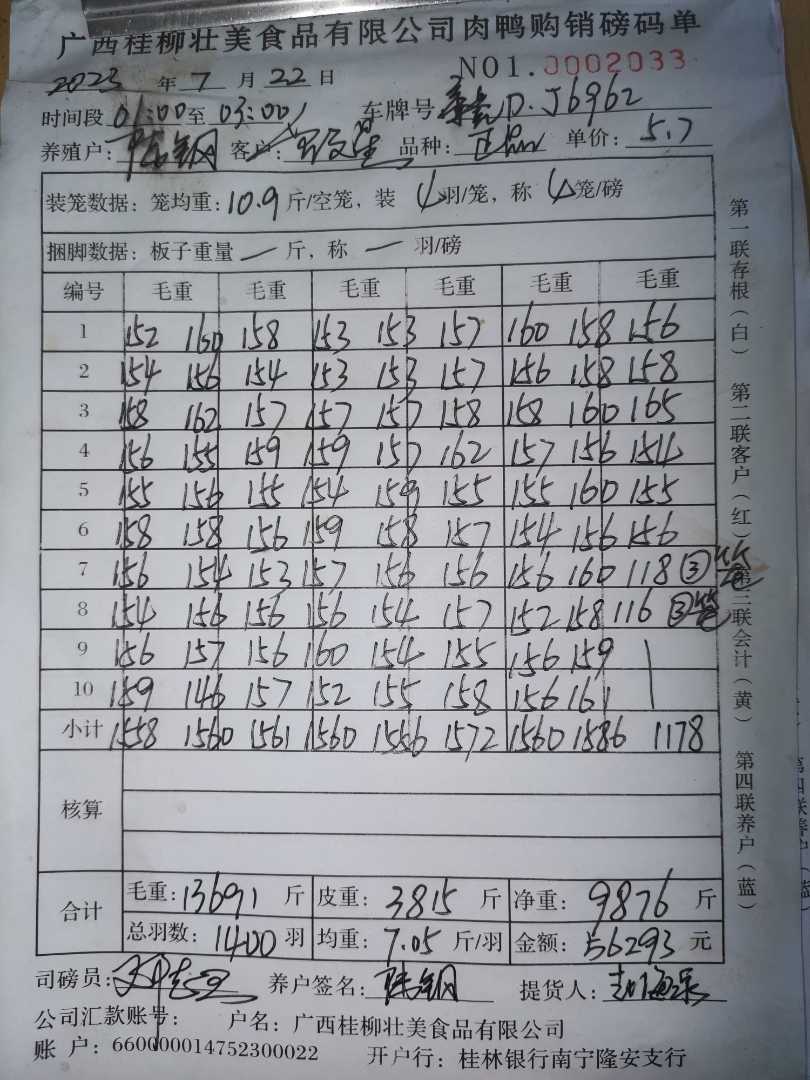 广西桂柳壮美食品有限公司肉鸭购销磅码单
2023 年 7 月 22 日 NO1.0002033
时间段 01:00 至 03:00 车牌号 D.J6962
养殖户: 钢 客户: 品种: 正品 单价: 5.7
装笼数据: 笼均重: 10.9 斤/空笼, 装 4 羽/笼, 称 4 笼/磅
捆脚数据: 板子重量 一 斤, 称 一 羽/磅
编号 毛重 毛重 毛重 毛重 毛重 毛重
1 152 160 158 153 153 157 160 158 156
2 154 156 154 153 153 157 156 158 158
3 158 162 157 157 157 158 158 160 165
4 156 155 159 159 157 162 157 156 154
5 155 156 155 154 159 155 155 160 155
6 158 158 156 159 158 157 154 156 156
7 156 154 153 157 156 156 156 160 118 ③笼
8 154 156 156 156 154 157 152 158 116 ③笼
9 156 157 156 160 154 155 156 159
10 159 146 157 152 155 158 156 161
小计 1558 1560 1561 1560 1556 1572 1560 1586 1178
核算
合计 毛重: 13691 斤 皮重: 3815 斤 净重: 9876 斤
总羽数: 1400 羽 均重: 7.05 斤/羽 金额: 56293 元
司磅员: 养户签名: 钢 提货人:
公司汇款账号: 户名: 广西桂柳壮美食品有限公司
账 户: 660000014752300022 开户行: 桂林银行南宁隆安支行
第一联存根(白) 第二联客户(红) 第三联会计(黄) 第四联养户(蓝)